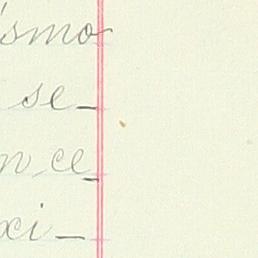 ísmo
se-
n, ce-
xi-